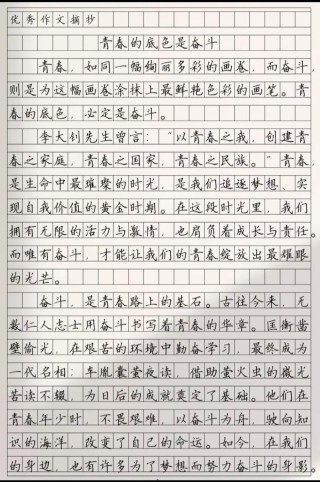 优秀作文摘抄
青春的底色是奋斗
青春，如同一幅绚丽多彩的画卷，而奋斗，
则是为这幅画卷涂抹上最鲜艳色彩的画笔。青
春的底色，必定是奋斗。
李大钊先生曾言：“以青春之我，创建青
春之家庭，青春之国家，青春之民族。”青春，
是生命中最璀璨的时光，是我们追逐梦想、实
现自我价值的黄金时期。在这段时光里，我们
拥有无限的活力与激情，也肩负着成长与责任。
而唯有奋斗，才能让我们的青春绽放出最耀眼
的光芒。
奋斗，是青春路上的基石。古往今来，无
数仁人志士用奋斗书写着青春的华章。匡衡凿
壁偷光，在艰苦的环境中勤奋学习，最终成为
一代名相；车胤囊萤夜读，借助萤火虫的微光
苦读不辍，为日后的成就奠定了基础。他们在
青春年少时，不畏艰难，以奋斗为舟，驶向知
识的海洋，改变了自己的命运。如今，在我们
的身边，也有许多为了梦想而努力奋斗的身影。